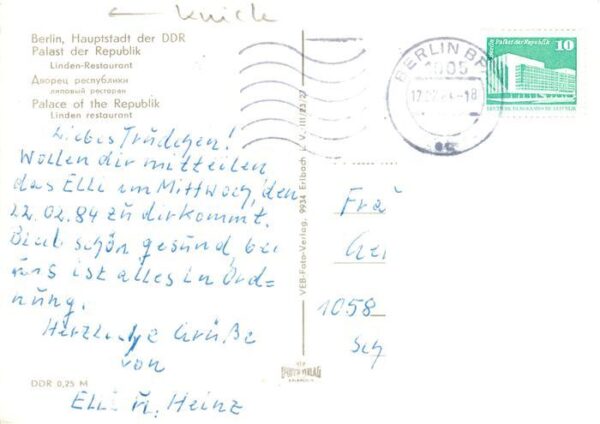 ← Knick
Berlin, Hauptstadt der DDR
Palast der Republik
Linden-Restaurant
Дворец республики
липовый ресторан
Palace of the Republik
Linden restaurant
Liebes Trudchen!
Wollen dir mitteilen
das Elli am Mittwoch, den
22.02.84 zu dir kommt.
Bleib schön gesund, bei
uns ist alles in Ord=
nung.
Herzliche Grüße
von
Elli u. Heinz
DDR 0,25 M
VEB-Foto-Verlag, 9934 Erlbach
BERLIN
Berlin Palast der Republik 10
Frau
1058
Sch